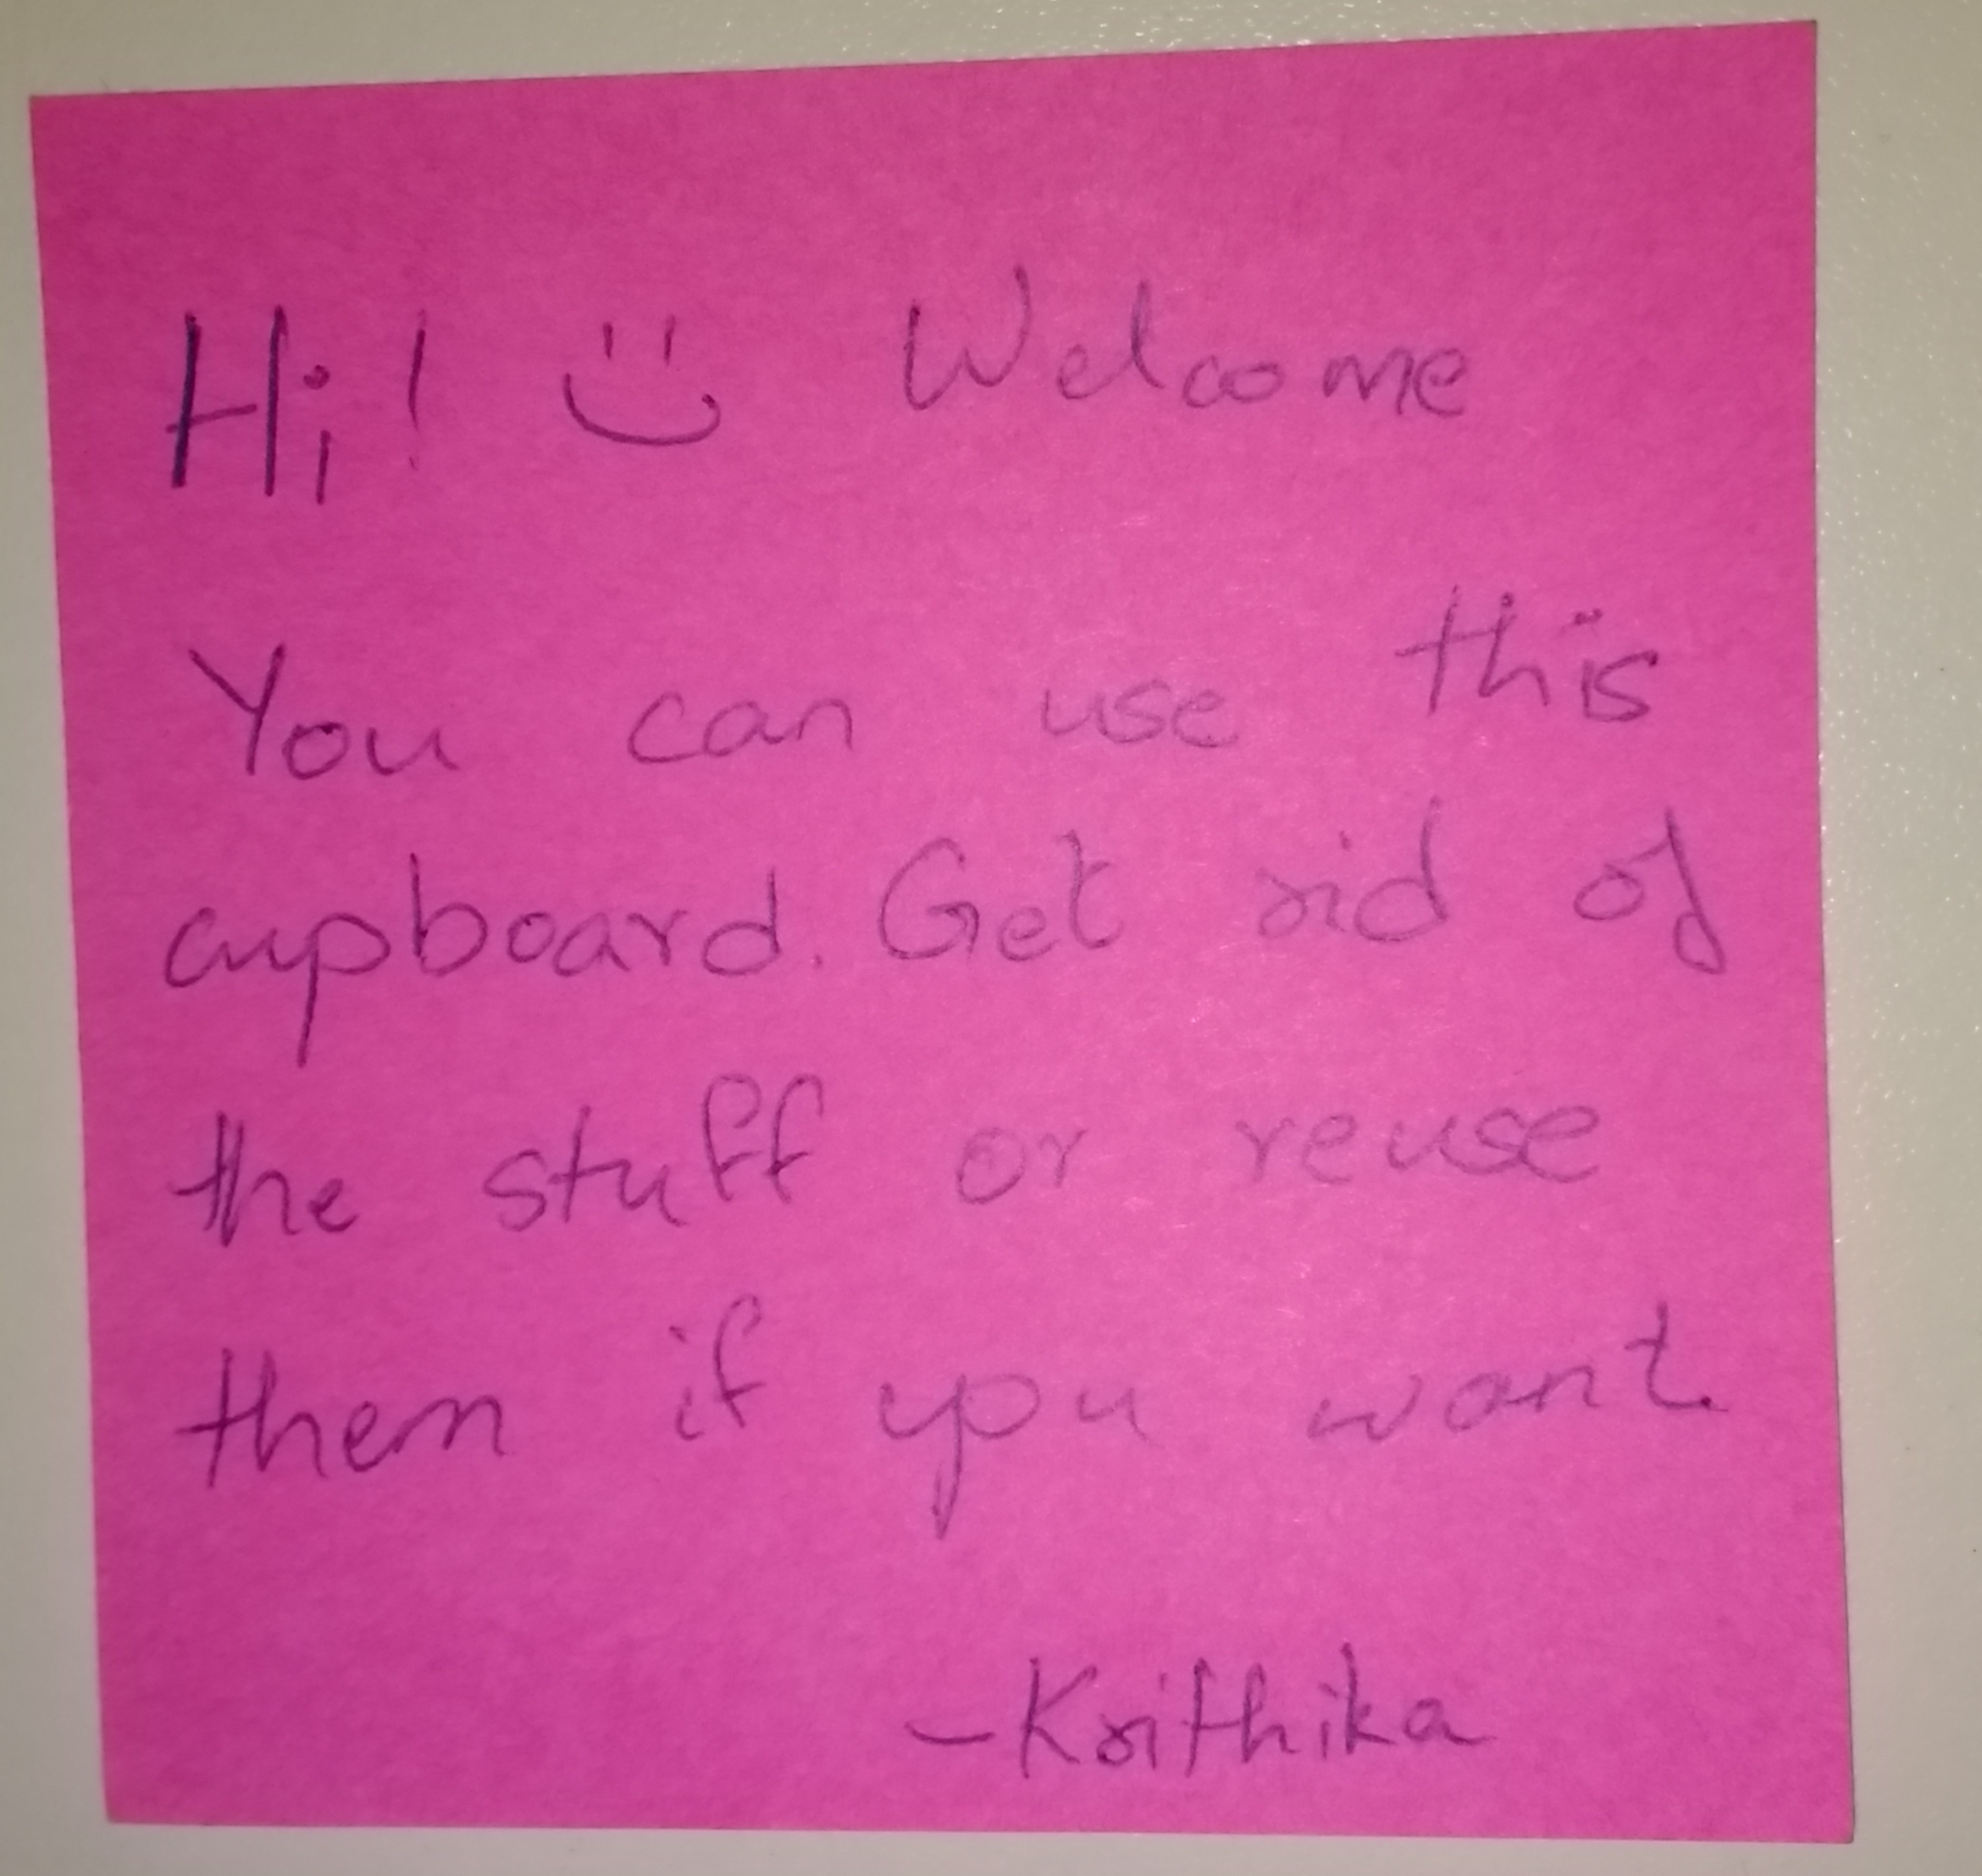 Hi! Welcome
You can use this
cupboard. Get rid of
the stuff or reuse
them if you want.
-Krithika